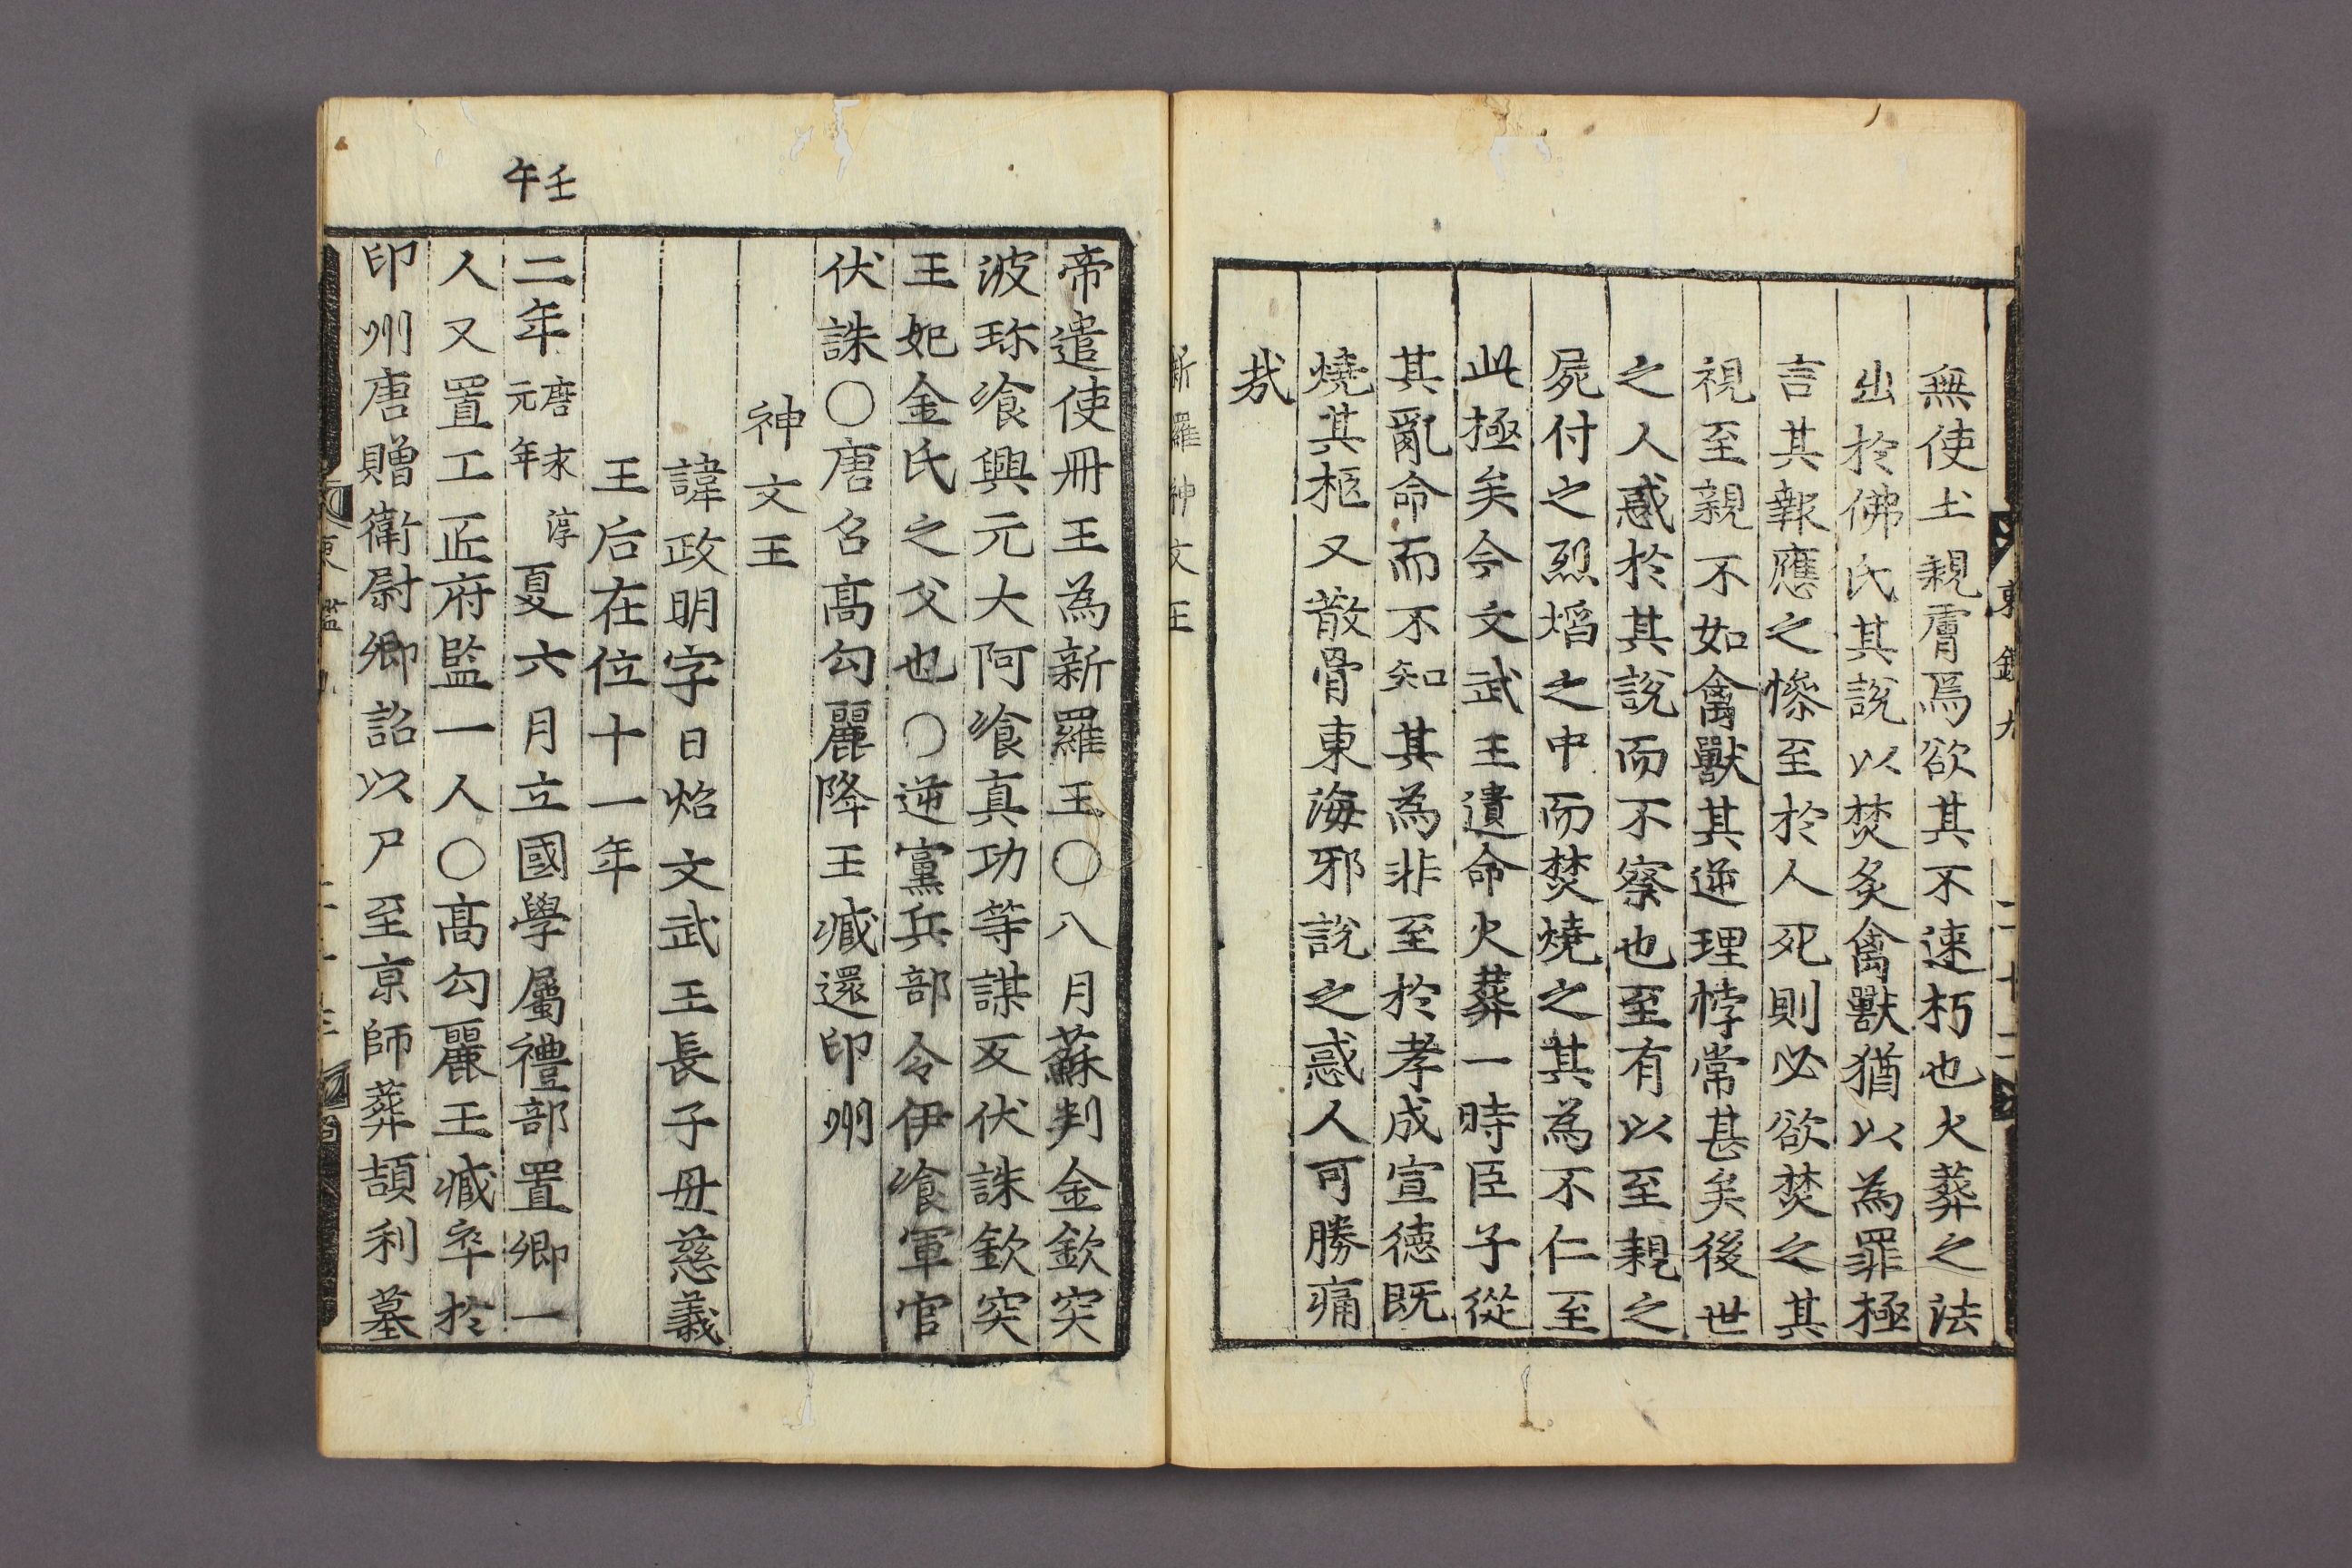 無使土親膚焉欲其不速朽也火葬之法
出於佛氏其說以焚炙禽獸猶以為罪極
言其報應之慘至於人死則必欲焚之其
視至親不如禽獸其逆理悖常甚矣後世
之人惑於其說而不察也至有以至親之
屍付之烈熖之中而焚燒之其為不仁至
此極矣今文武王遺命火葬一時臣子從
其亂命而不知其為非至於孝成宣德既
燒其柩又散骨東海邪說之惑人可勝痛
㦲
新羅神文王
帝遣使冊王為新羅王○八月蘇判金欽突
波珎飡興元大阿飡真功等謀叛伏誅欽突
王妃金氏之父也○逆黨兵部令伊飡軍官
伏誅○唐召高勾麗降王臧還卬州
神文王
諱政明字日炤文武王長子毋慈義
王后在位十一年
壬午
二年唐永淳元年夏六月立國學屬禮部置卿一
人又置工匠府監一人○高勾麗王臧卒於
卬州唐贈衛尉卿詔以尸至京師葬頡利墓